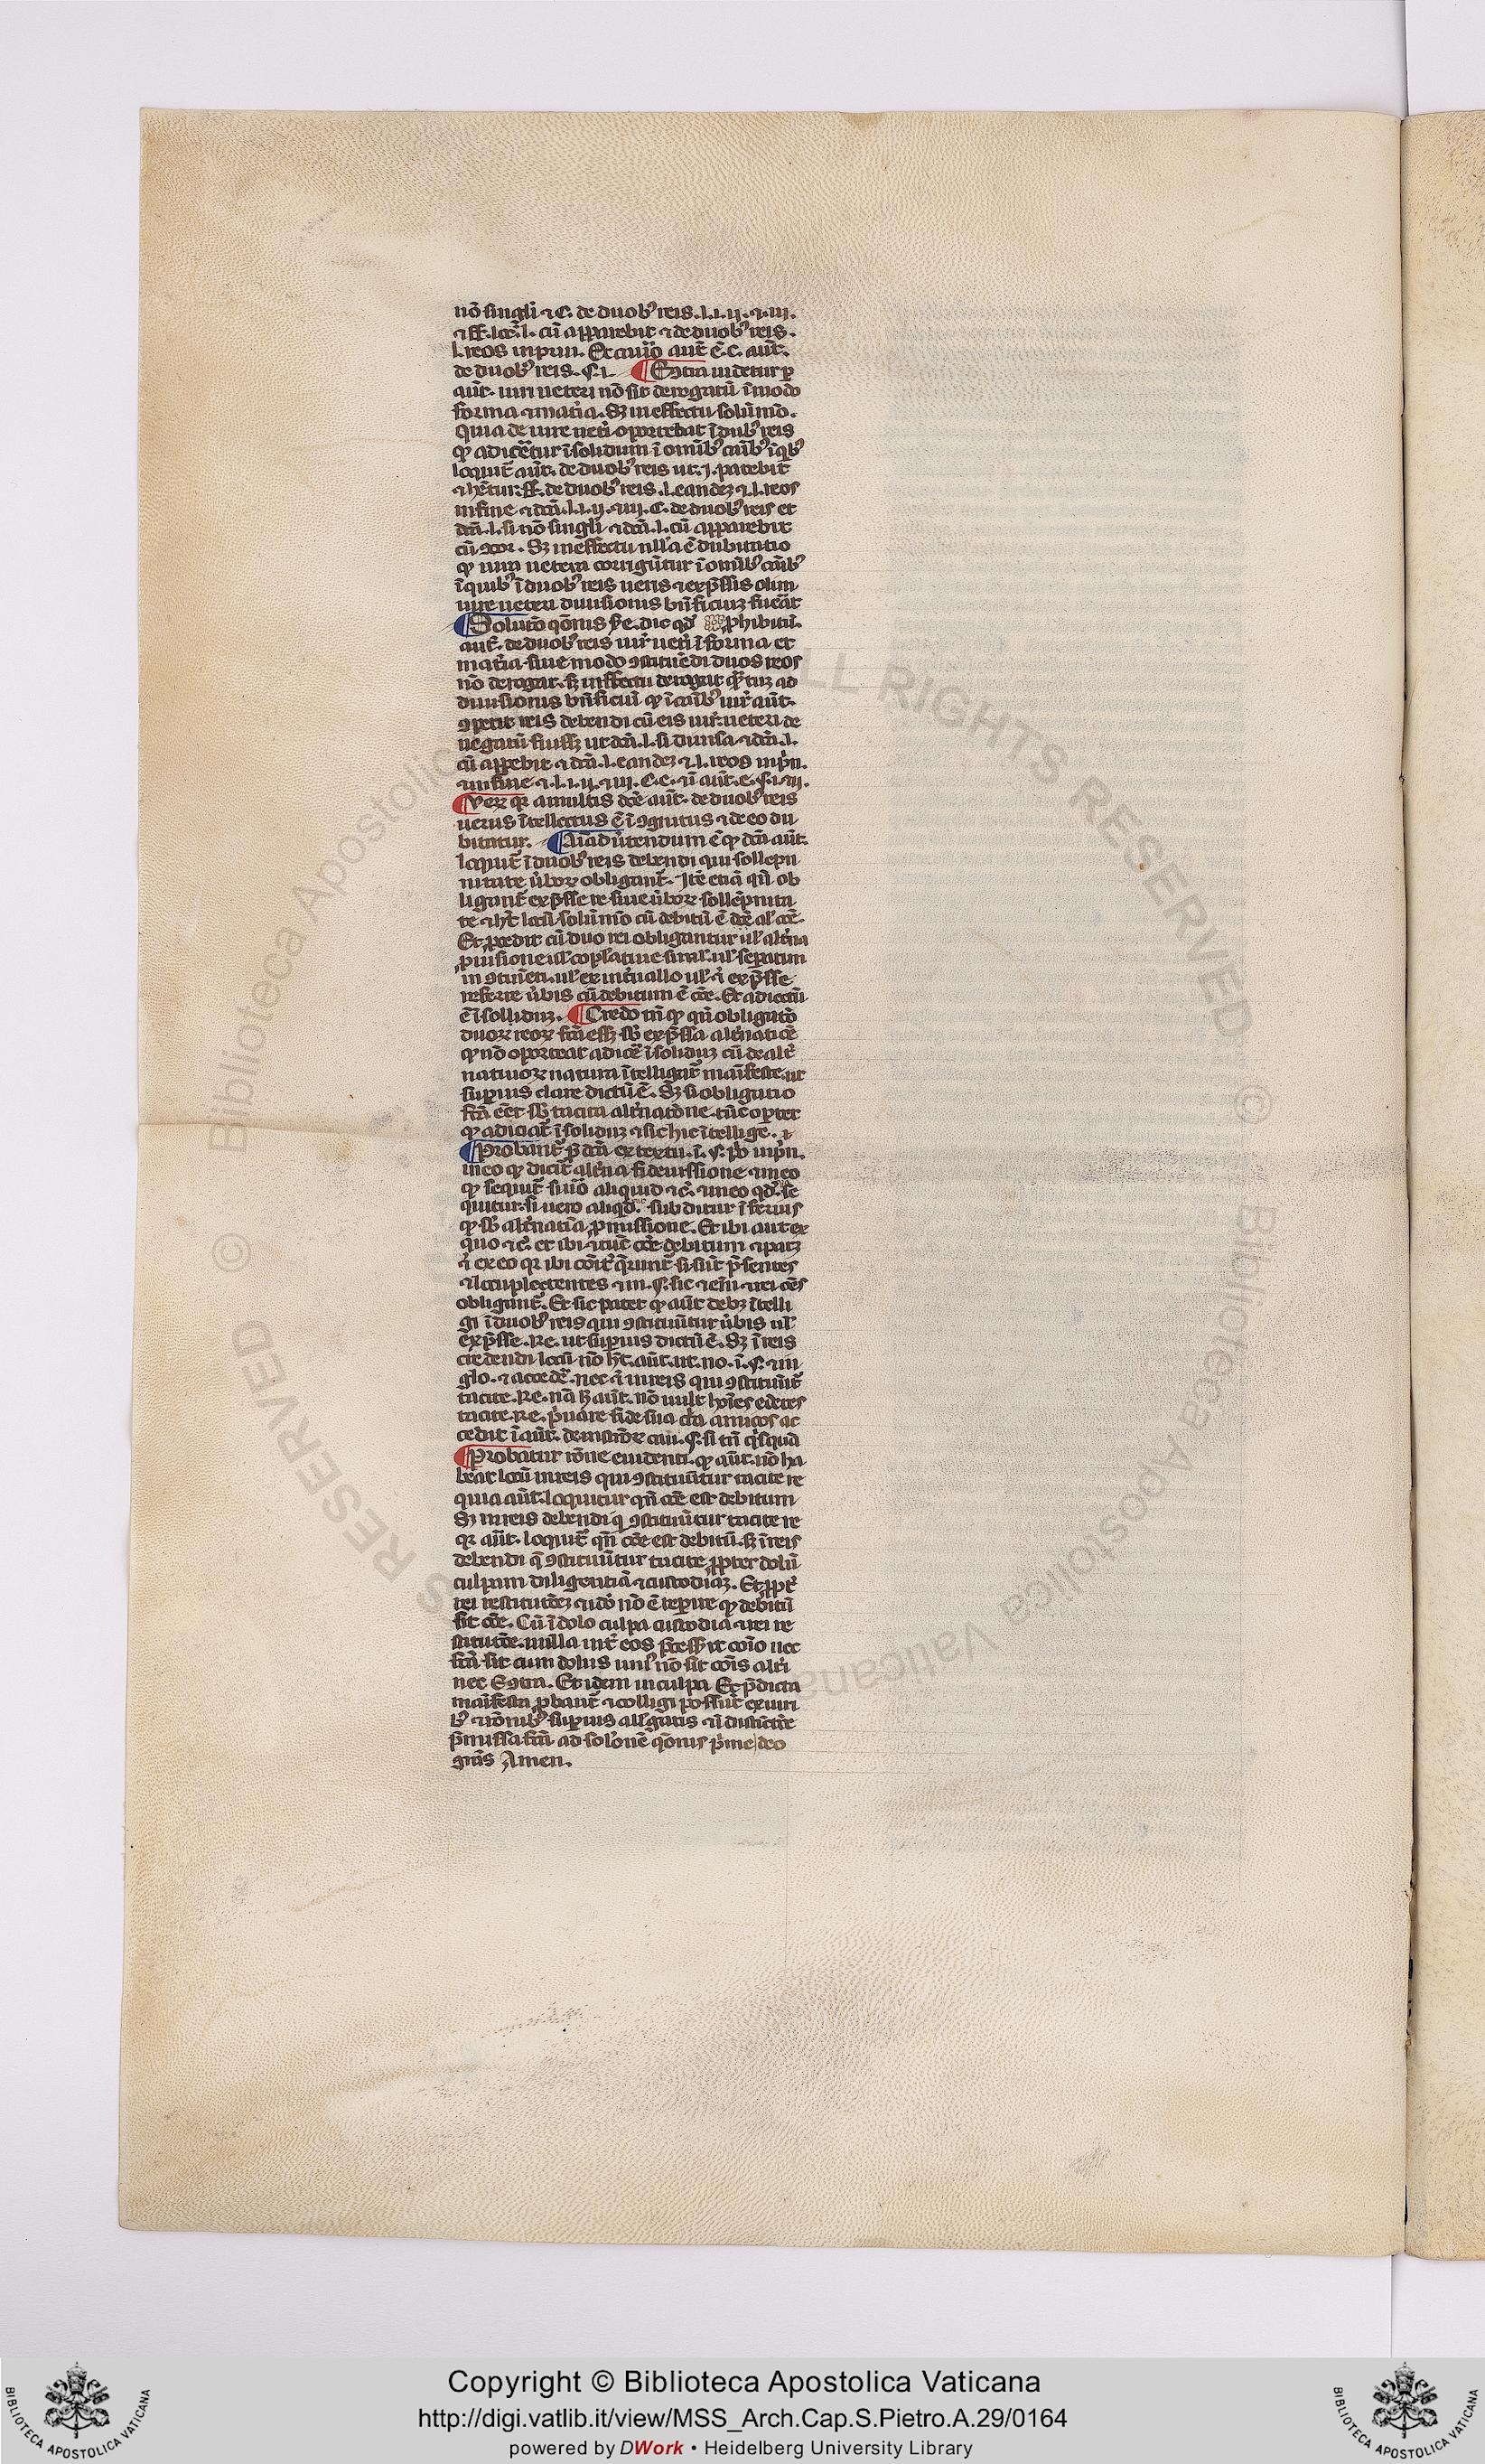 nō singli ⁊ C. de duob᷒ reis. l. i. ij. ⁊. iij.
⁊ ff. loc̄. l. cū apparebit ⁊ de duob᷒ reis.
l. reos in prin. Et
de duob᷒ reis. §. i. ¶ Ꝯtra uidetur ꝑ
aūt. iuri ueteri nō sit derogatū ī modo
forma ⁊ mat̄ia. Sꝫ in effectu solūmō.
Quia de iure uet̄i oportebat ī duob᷒ reis
qđ adicēt̄ur ī solidum ī omib᷒ casib᷒ ī qb᷒
loquit̄ aūt. de duob᷒ reis ut. j. patebit
⁊ hētur. ff. de duob᷒ reis. l. eandez ⁊. l. reos
in fine ⁊ dcā. l. i. ij. ⁊ iij. C. de duob᷒ reis et
dcā. l. si nō singli ⁊ dcā. l. cū apparebit
cū ꝯcor. Sꝫ in effectu nlla ē dubitatio
qđ iura uetera corrigūtur ī omib᷒ casib᷒
ī quib᷒ ī duob᷒ reis ueris ⁊ exp̄ssis olim
iure ueteri diuisionis bn̄ficiuꝫ fuerat
¶ Soluto qōnis dic qđ ꝓhibitū.
aut̄. de duob᷒ reis iur̄ uet̄i ī forma et
mat̄ia siue modo ꝯstituēdi duos reos
nō derogat. sꝫ in effectu derogat quātuꝫ ad
diuisionis bn̄ficiū qđ ī casib᷒ iur̄ aūt.
ꝯpetit reis debendi cū eis iur̄ ueteri de
negatū fuissꝫ ut dcā. l. si diuisa ⁊ dcā. l.
cū apꝑebit ⁊ dcā. l. eandez ⁊ l. reos in pn̄.
⁊ in fine ⁊. l. i. ij. ⁊ iij. C. e. ⁊ ī aūt. e. §. i. ⁊ iij.
¶ Verꝫ qr a multis dc̄e aūt. de duob᷒ reis
uerus ītellectus ē īꝯgnitus ⁊ de eo du
bitatur. ¶ Aīaduertendum ē qđ dcā aūt.
loquit̄ ī duob᷒ reis debendi qui sollepn
nitate ūborꝫ obligant̄. Itē etiā qn̄ ob
ligant̄ exp̄sse re siue ūborꝫ sollēpnita
te ⁊ ht̄ locū solūmō cū debitū ē
Et ꝓcedit cū duo rei obligantur ul alt̄na
ꝓmissione ul copulatiue simul ul seꝑatim
in ꝯtinēti. ul ex int̄uallo ul ⁊ exp̄sse
referre ūbis cū debitum ē cōe. Et adiectū
ē ī sollidiuꝫ. ¶ Credo tn̄ qđ qn̄ obligatō
duorꝫ reorꝫ fcā essꝫ sb exp̄ssa alt̄natiōe
qđ nō oporteat adicer̄ ī soliduꝫ cū de alt̄
natiuorꝫ natura ītelligat̄ maīfeste. ut
superius clare dictū ē. Sꝫ si obligatio
fcā eēt sb tacita alt̄natōne. tūc oportet
qđ adiciat̄ ī soliduꝫ ⁊ sic hic ītellige. ⁊
¶ Probant̄ p̄dcā ex textu. ī. §. io in pn̄.
in eo qđ dicit̄ alt̄na fideiussione ⁊ in eo
qđ sequit̄ aliquid ⁊c̄. ⁊ in eo qđ. se
quitur. si uero aliqd. subditur īferius
qđ sb alt̄natiā ꝓmissione. Et ibi aut ex
quo ⁊c̄. et ibi ⁊ tūc cōe debitum ⁊ patꝫ
⁊ ex eo qr ibi si sūt p̄sentes
⁊ l. cōuplectentes ⁊ in. §. sic ⁊ enī ⁊ rei oēs
obligant̄. Et sic patet qđ aūt debꝫ ītelli
gi ī duob᷒ reis qui ꝯstituūtur ūbis ul
exp̄sse. Re. ut superius dictū ē. Sꝫ ī reis
credendi locū nō ht̄. aūt. ut. no. ī. §. ⁊ in
glo. ⁊ accede. nec ⁊ in reis qui ꝯstituūt̄
tacite. Re. nā hꝫ aūt. nō uult
tacite. re. p̄uare fide sua amicos ac
cedit ī aūt.
¶ Probatur rōne euidenti. qđ aūt. nō ha
beat locū in reis qui ꝯstituūtur tacite re
quia aūt. loquitur qn̄ cōe est debitum
Sꝫ in reis debendi q ꝯstituūtur tacite re
qr aūt. loquit̄ qn̄ cōe est debitū. sꝫ ī reis
debendi q̄ ꝯstituūtur tacite ꝓpter dolū
culpam diligentiā ⁊ custodiaꝫ. Et ꝓpt̄
rei restitutōeꝫ ⁊ idō nō ē reꝑire qđ debitū
sit cōe. Cū ī dolo culpa custodia ⁊ rei re
stitutōe. nulla int̄ eos p̄cessit cōio nec
fcā sit cum dolus uni᷒ nō sit cōis alt̄i
nec ꝯtra. Et idem in culpa Et p̄dicta
maīfesta ꝓbant̄ ⁊ colligi possūt ex iuri
b᷒ ⁊ rōnib᷒ superius allegatis ⁊ ī distinctōe
p̄missa fcā ad solōnē qōnis p̄me deo
grās Amen.
Copyright © Biblioteca Apostolica Vaticana
http://digi.vatlib.it/view/MSS_Arch.Cap.S.Pietro.A.29/0164
powered by DWork • Heidelberg University Library